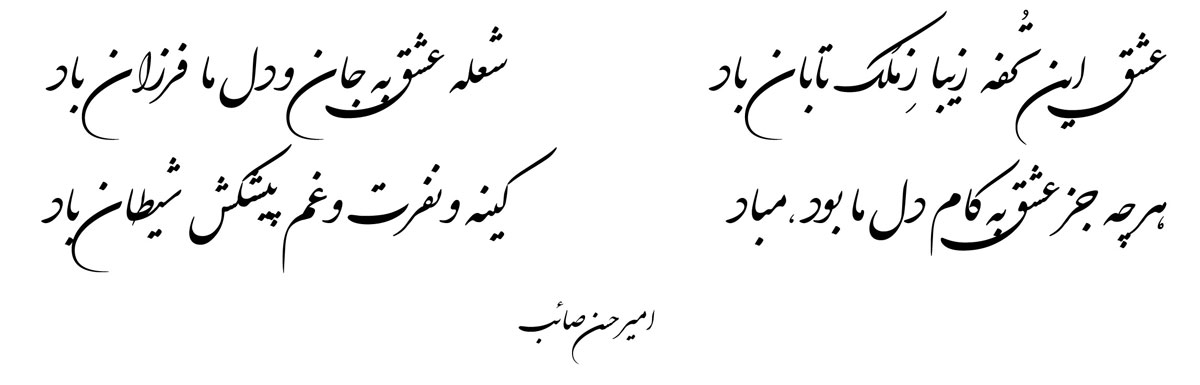 عشق این تُحفه زیبا زِ مَلَک تابان باد شعله عشق به جان و دل ما فرزان باد
هرچه جز عشق به کام دل ما بود، مباد کینه و نفرت و غم پیشکش شیطان باد
امیرحسن صائب